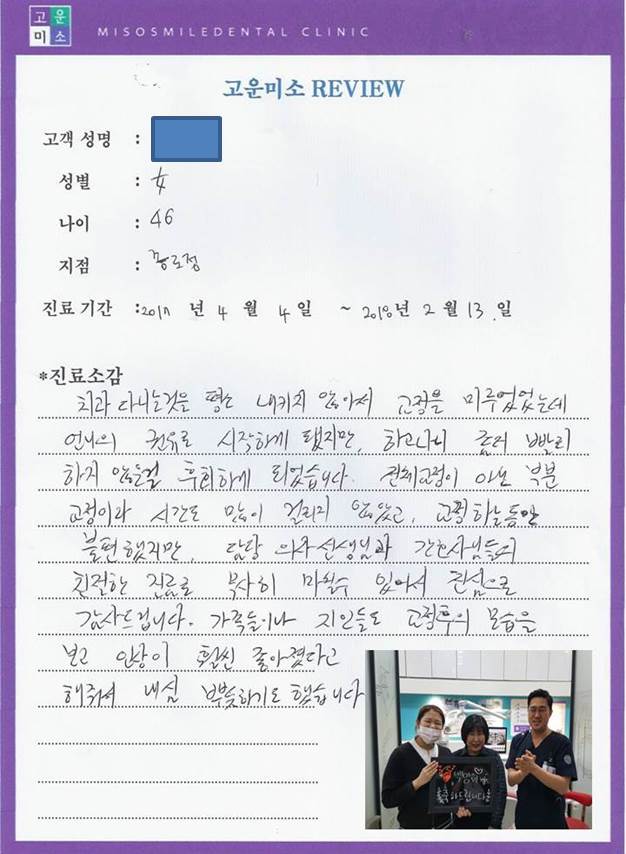 고운
미소
MISOSMILEDENTAL CLINIC
고운미소 REVIEW
고객 성명 :
성별 : 女
나이 : 46
지점 : 종로점
진료 기간 : 2017 년 4 월 4 일 ~ 2018년 2 월 13 일
*진료소감
치과 다니는것을 평소 내키지 않아서 교정을 미루었었는데
언니의 권유로 시작하게 됐지만, 하고나니 좀더 빨리
하지 않은걸 후회하게 되었습니다. 전체교정이 아닌 부분
교정이라 시간도 많이 걸리지 않았고, 교정하는동안
불편했지만, 담당 의사선생님과 간호사님들의
친절한 진료로 무사히 마칠수 있어서 진심으로
감사드립니다. 가족들이나 지인들도 교정후의 모습을
보고 인상이 훨씬 좋아졌다고
해줘서 내심 뿌듯하기도 했습니다
축하드립니다